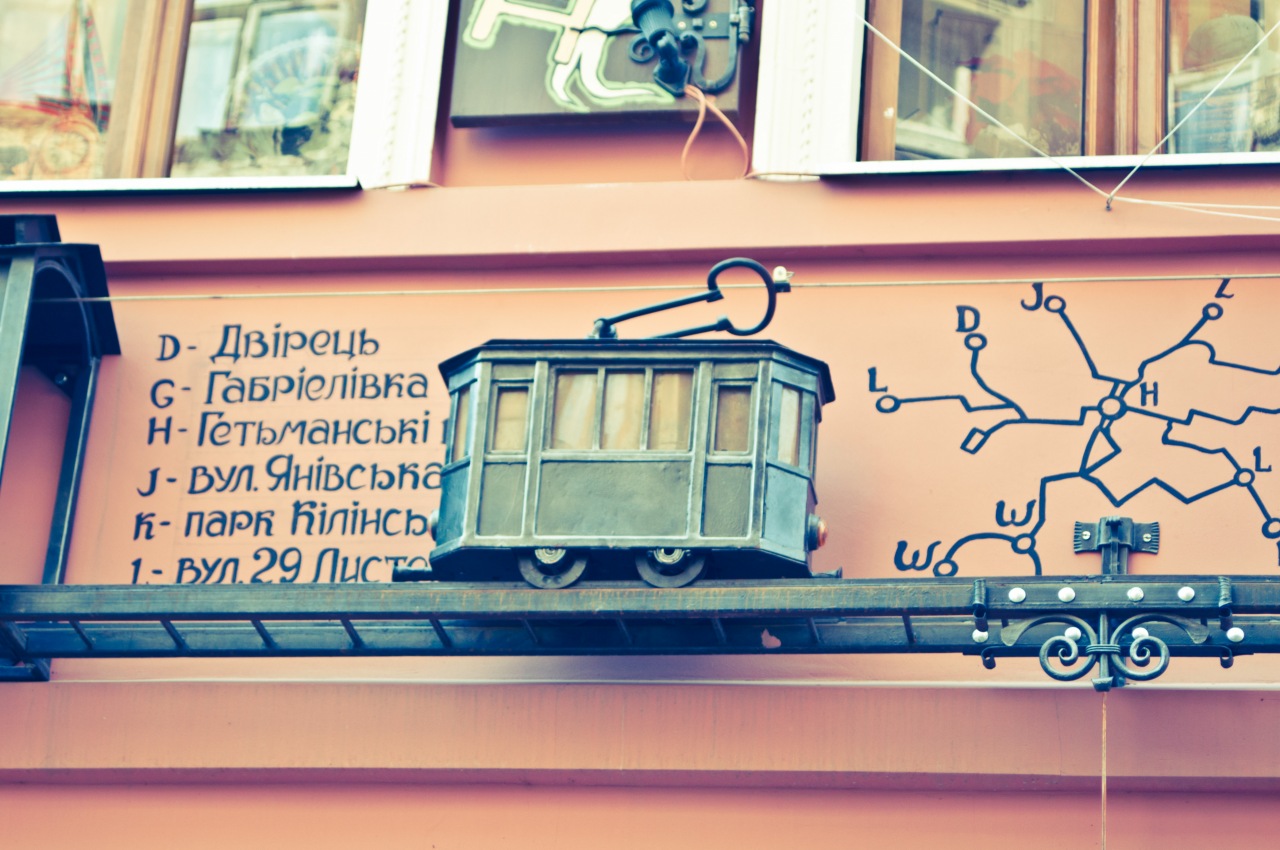 D - Двірець
G - Габріелівка
H - Гетьманські
J - вул. Янівська
K - парк Кілінсь
L - вул. 29 Листо
J
L
D
L
H
L
W
W